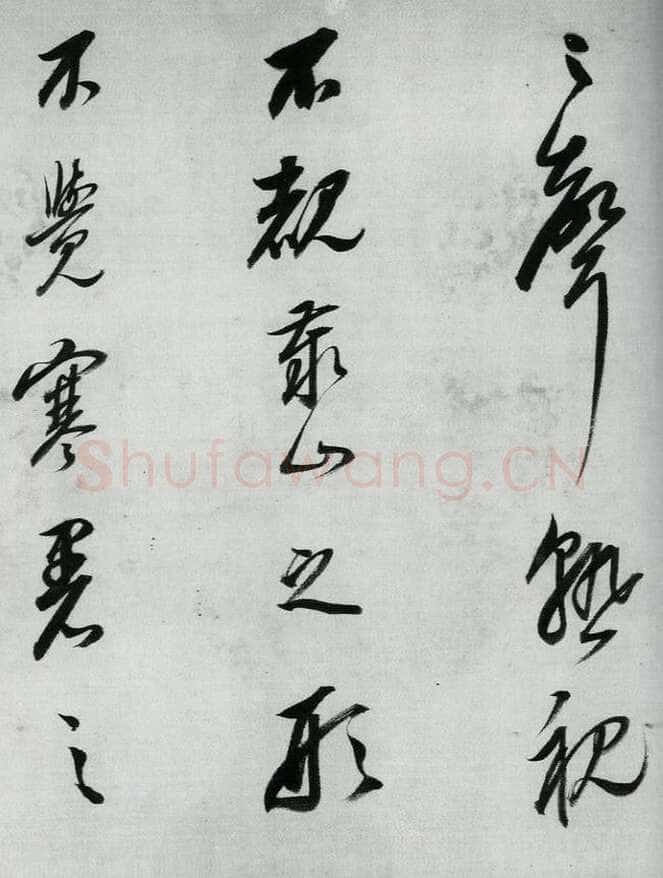 之聲熟視
不覩泰山之形
不覺寒暑之
Shufawang.CN